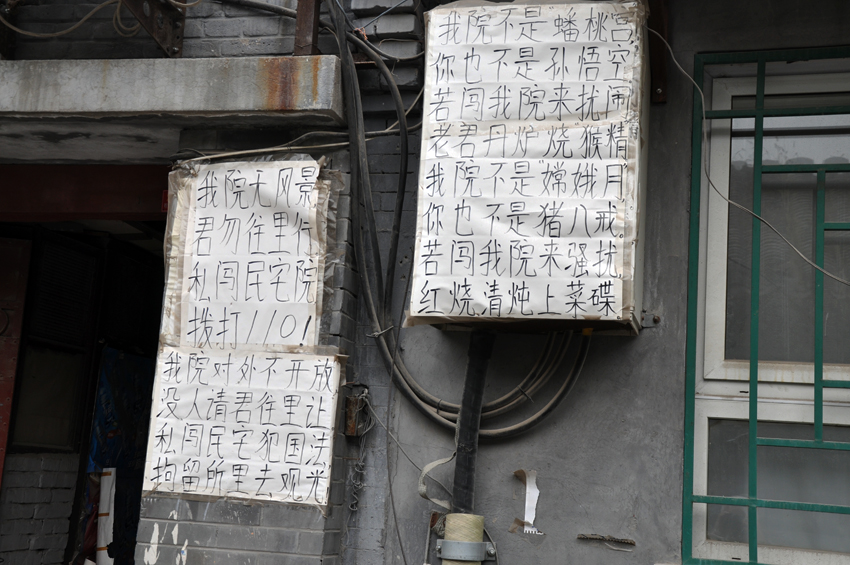 我院无风景
君勿往里行
私闯民宅院
拨打110!
我院对外不开放
没人请君往里让
私闯民宅犯国法
拘留所里去观光
我院不是"蟠桃宫
你也不是孙悟空
若闯我院来扰闹
老君丹炉烧"猴精
我院不是"嫦娥月
你也不是猪八戒。
若闯我院来骚扰
红烧清炖上菜碟